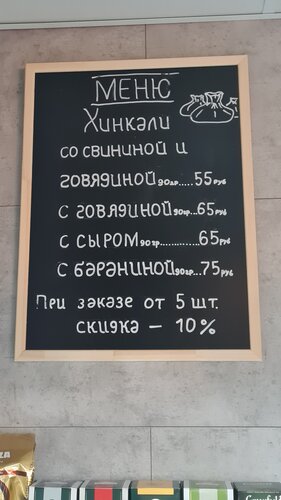 МЕНЮ
Хинкали
со свининой и
говядиной 90гр.....55руб
с говядиной 90гр...65руб
с сыром 90гр.............65руб
с бараниной 90гр...75руб
При заказе от 5 шт.
скидка – 10%